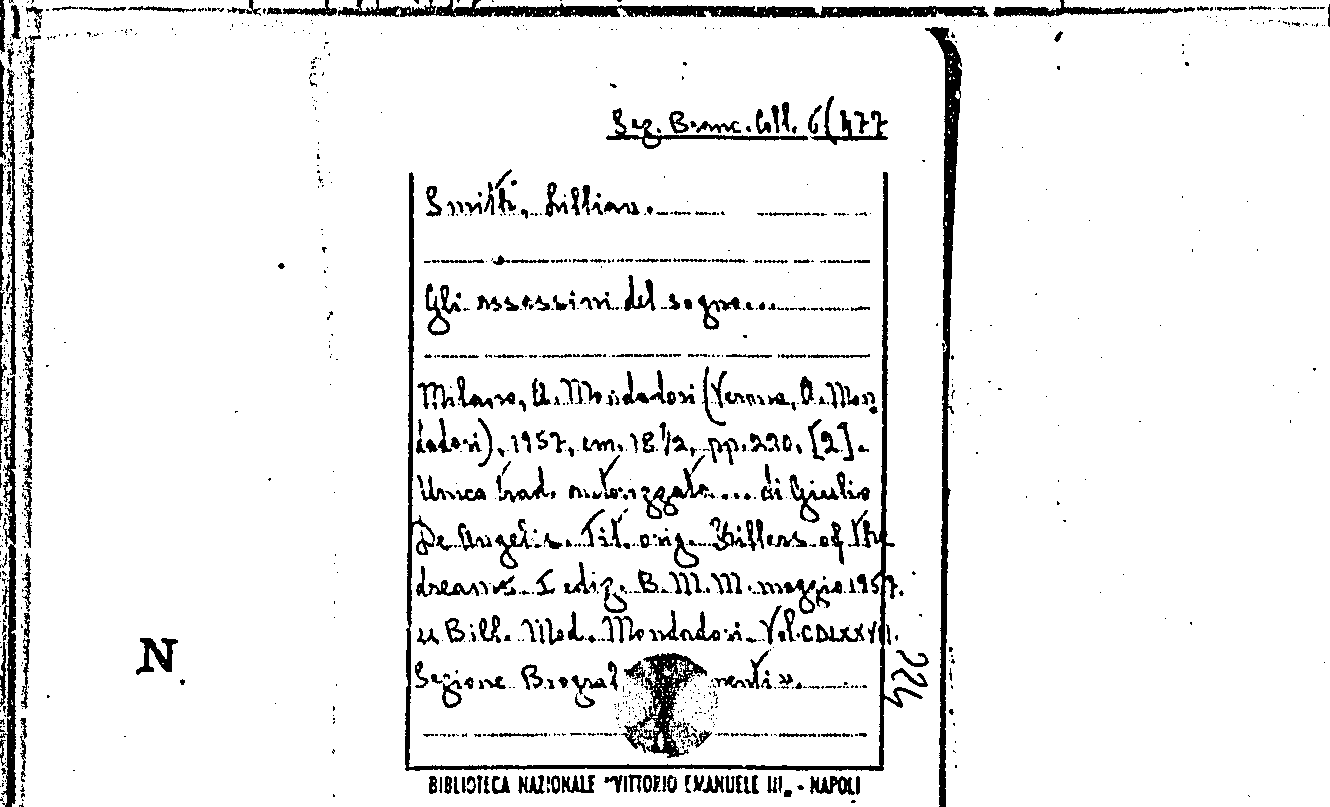 Sez. Branc. Coll. 6(477
Smith, Lillian.
Gli assassini del sogno...
Milano, A. Mondadori (Verona, A. Mon-
dadori), 1957, cm. 18½, pp. 220, [2].
Unica trad. autorizzata... di Giulio
De Angelis. Tit. orig. Killers of the
dreams. I ediz. B.M.M. maggio 1957.
« Bibl. Mod. Mondadori. Vol. CDLXXVII.
Sezione menti».
224
N
BIBLIOTECA NAZIONALE "VITTORIO EMANUELE III„ - NAPOLI